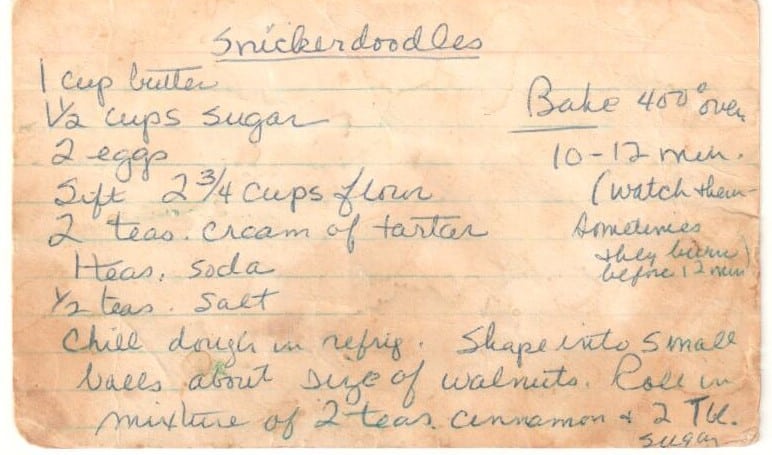 Snickerdoodles
1 cup butter
1 1/2 cups sugar
2 eggs
Sift 2 3/4 cups flour
2 teas. cream of tartar
1 teas. soda
1/2 teas. salt
Chill dough in refrig. Shape into small
balls about size of walnuts. Roll in
mixture of 2 teas. cinnamon & 2 Tbl.
sugar
Bake 400° oven
10-12 min.
(watch them-
sometimes
they burn)
before 12 min